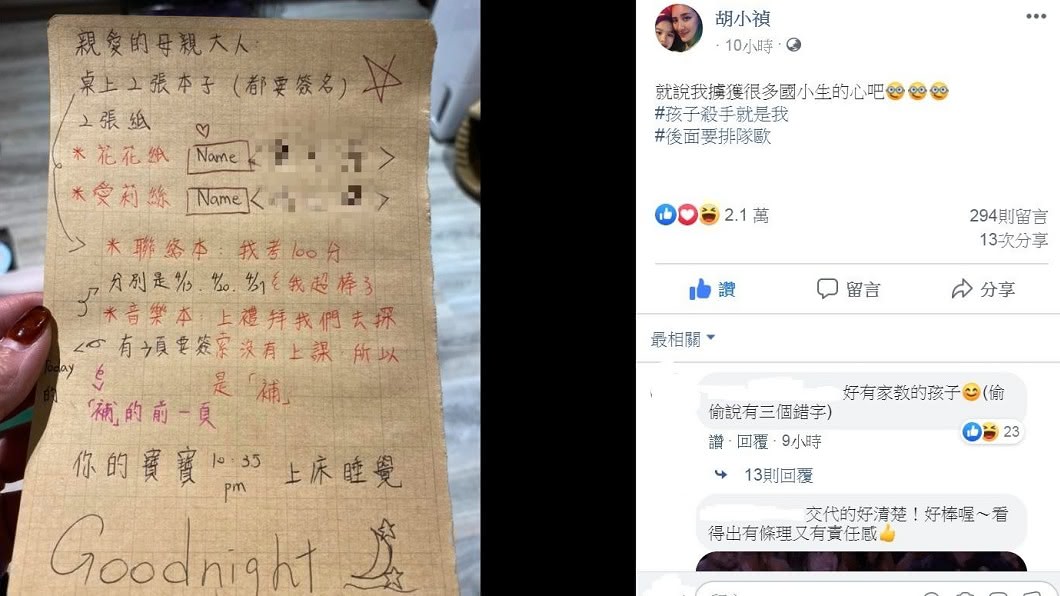 親愛的母親大人:
桌上2張本子(都要簽名)
2張紙
*花花紙 Name < >
*愛莉絲 Name < >
*聯絡本:我考100分
分別是
我超棒
*音樂本:上禮拜我們去探
有 頁要簽 索沒有上課,所以
Today
的
是「補」
「補」的前一頁
你的寶寶 10:35 pm 上床睡覺
Goodnight
胡小禎
10小時
就說我擄獲很多國小生的心吧🥸🥸🥸
#孩子殺手就是我
#後面要排隊歐
2.1 萬
294則留言
13次分享
讚 留言 分享
最相關
好有家教的孩子😊(偷
偷說有三個錯字)
23
讚 · 回覆 · 9小時
13則回覆
交代的好清楚!好棒喔~看
得出有條理又有責任感👍